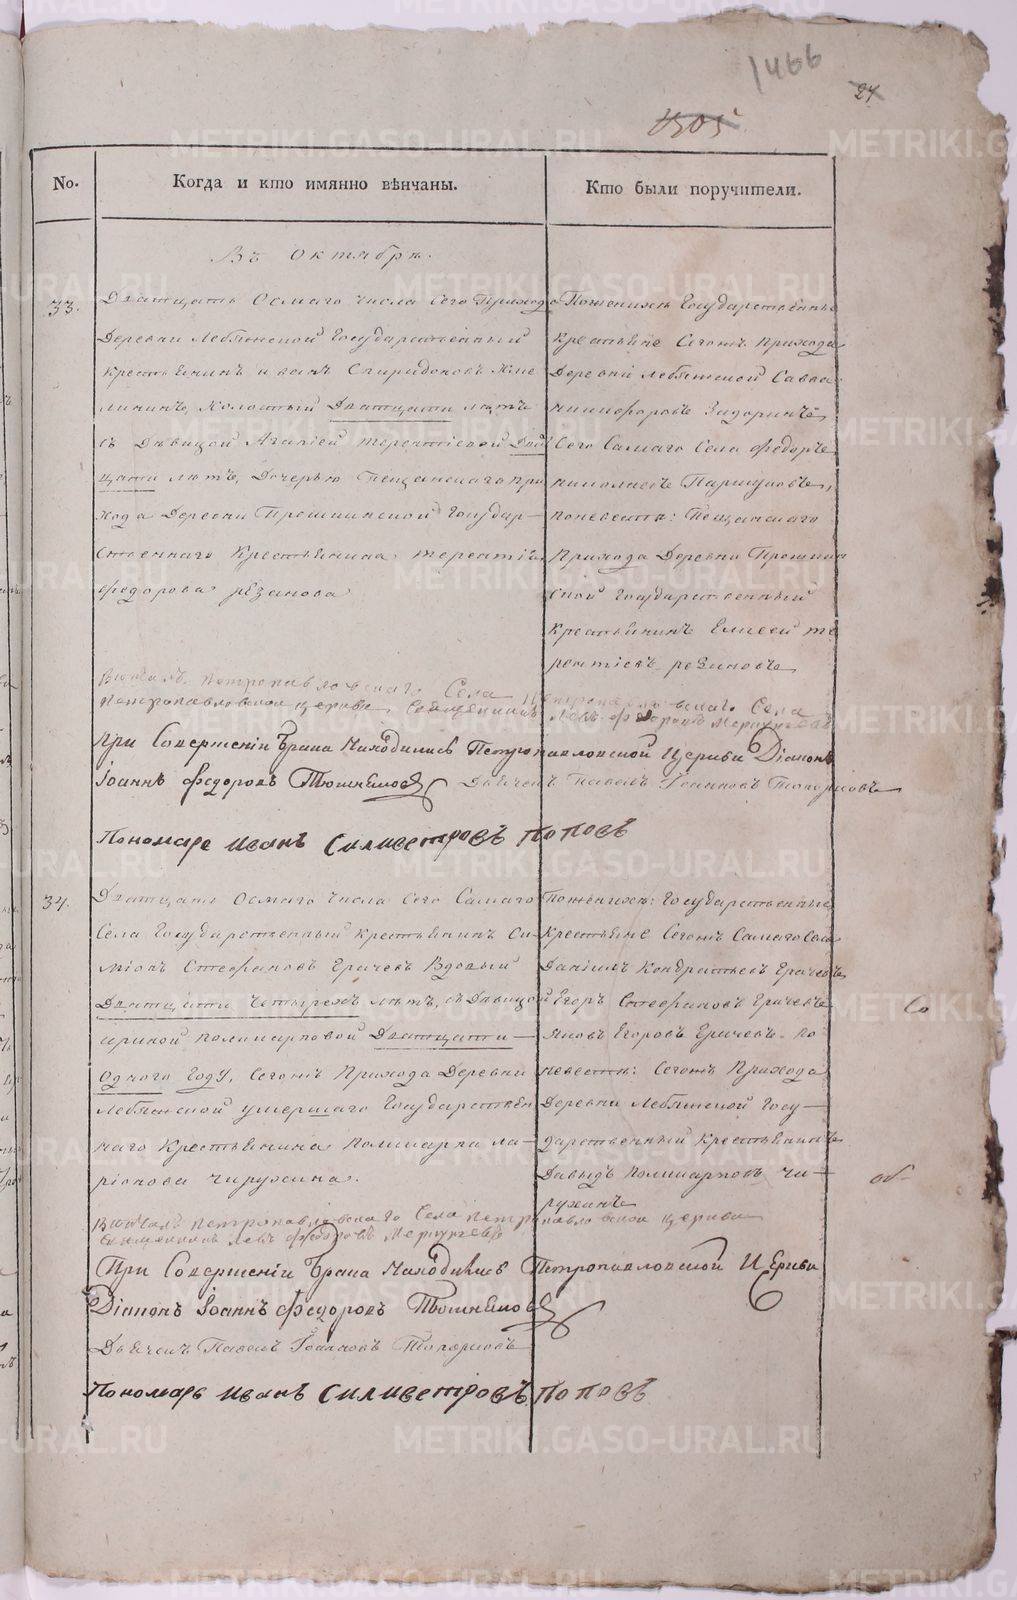 1466
24
1505
No.
Когда и кто имянно вѣнчаны.
Кто были поручители.
Въ Октябрѣ.
33.
Дватцать Осмаго числа Сего Прихода
Деревни Лебяжской Государственный
крестьянинъ Иванъ Спиридоновъ Хме
лининъ, Холостый Дватцати лѣтъ
съ Дѣвицой Агапіей Терентіевой Дват
цати лѣтъ, Дочерью Пещанскаго при
хода Деревни Прошкинской Государ-
ственнаго Крестьянина Терентія
Федорова Рѣзанова
По женихѣ Государственные
крестьяне Сегожъ прихода
Деревни Лебяжской Савва
Никифоровъ Задоринъ
Сего Самаго Села Федоръ
Паршуковъ,
по невестѣ: Пещанскаго
прихода Деревни Прошкин
ской Государственный
крестьянинъ Елисей Те
рентіевъ резановъ
Вѣнчалъ Петропавловскаго Села Петропавловскаго Села
Петропавловской церкви Священникъ Левъ Федоровъ Меркурьевъ
При Совершеніи Брака Находились Петропавловской Церкви Діаконъ
Іоаннъ Федоровъ Тюшняковъ Дьячекъ Павелъ Іоанновъ Топорковъ
Пономаре Иванъ Силивестровъ Поповъ
34.
Дватцать осмаго числа Сего Самаго
Села Государственный крестьянинъ Си-
міонъ Стефановъ Грачевъ Вдовый
Дватцати Четырехъ лѣтъ, съ Дѣвицой
ириной поликарповой Дватцати-
Одного Году, Сегожъ Прихода Деревни
Лебяжской умершаго Государствен
наго Крестьянина Поликарпа ла-
ріонова Чирухина.
По женихѣ: Государственные
крестьяне Сегожъ Самаго Села
Даніилъ Кондратьевъ Грачевъ
Егоръ Стефановъ Грачевъ
Яковъ Егоровъ Грачевъ. по
невестѣ: Сегожъ Прихода
Деревни Лебяжской Госу-
дарственный крестьянинъ
Давыдъ Поликарповъ Чи-
рухинъ
Вѣнчалъ Петропавловскаго Села Петропавловской церкви
Священникъ Левъ Федоровъ Меркурьевъ
При Совершеніи Брака Находились Петропавловской Церкви
Діаконъ Іоаннъ Федоровъ Тюшняковъ
Дьячекъ Павелъ Іоанновъ Топорковъ
Пономарь Иванъ Силивестровъ Поповъ
METRIKI.GASO-URAL.RU